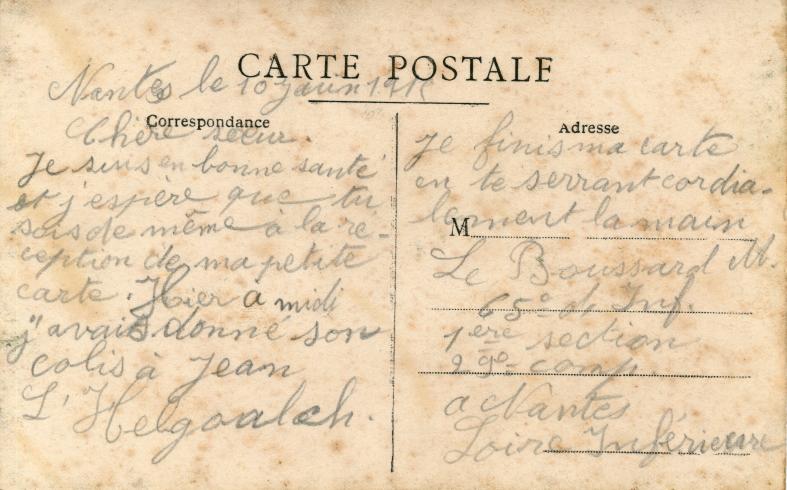 CARTE POSTALE
Nantes le 10
Correspondance
Chère sœur.
Je suis en bonne santé
et j'espère que tu
sois de même à la ré-
ception de ma petite
carte. Hier à midi
j'avais donné son
colis à Jean
L'Helgoalch.
Adresse
Je finis ma carte
en te serrant cordia-
lement la main
M
Le Boussard M.
65e d'Inf.
1ère section
comp.
a Nantes
Loire Inférieure